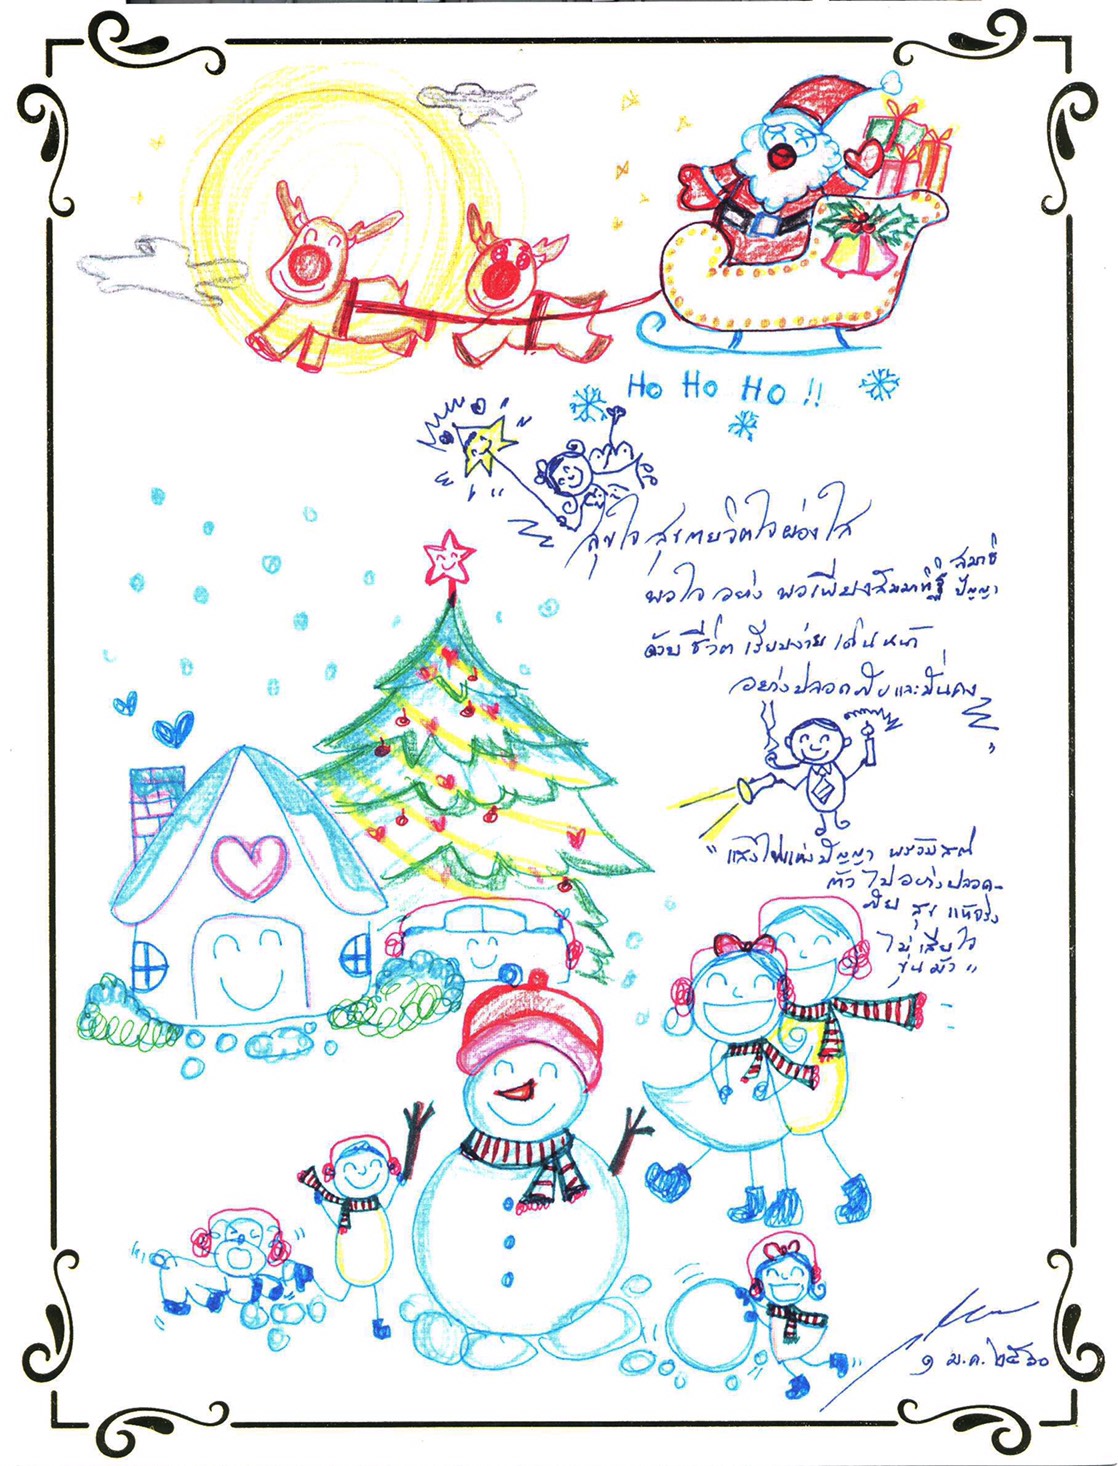 Ho Ho Ho !!
สุขใจ สุขกายจิตใจผ่องใส
พอใจ อย่าง พอเพียงสัมมาทิฏฐิ สมาธิ ปัญญา
ด้วย ชีวิต เรียบง่าย เดินหน้า
อย่างปลอดภัยและมั่นคง
"แสงไฟแห่งปัญญา พร้อมสติ
ตัว ไปอย่างปลอด-
ภัย สุข แท้จริง
ไม่เสียใจ
ขุ่นมัว"
๑ ม.ค. ๒๕๖๐